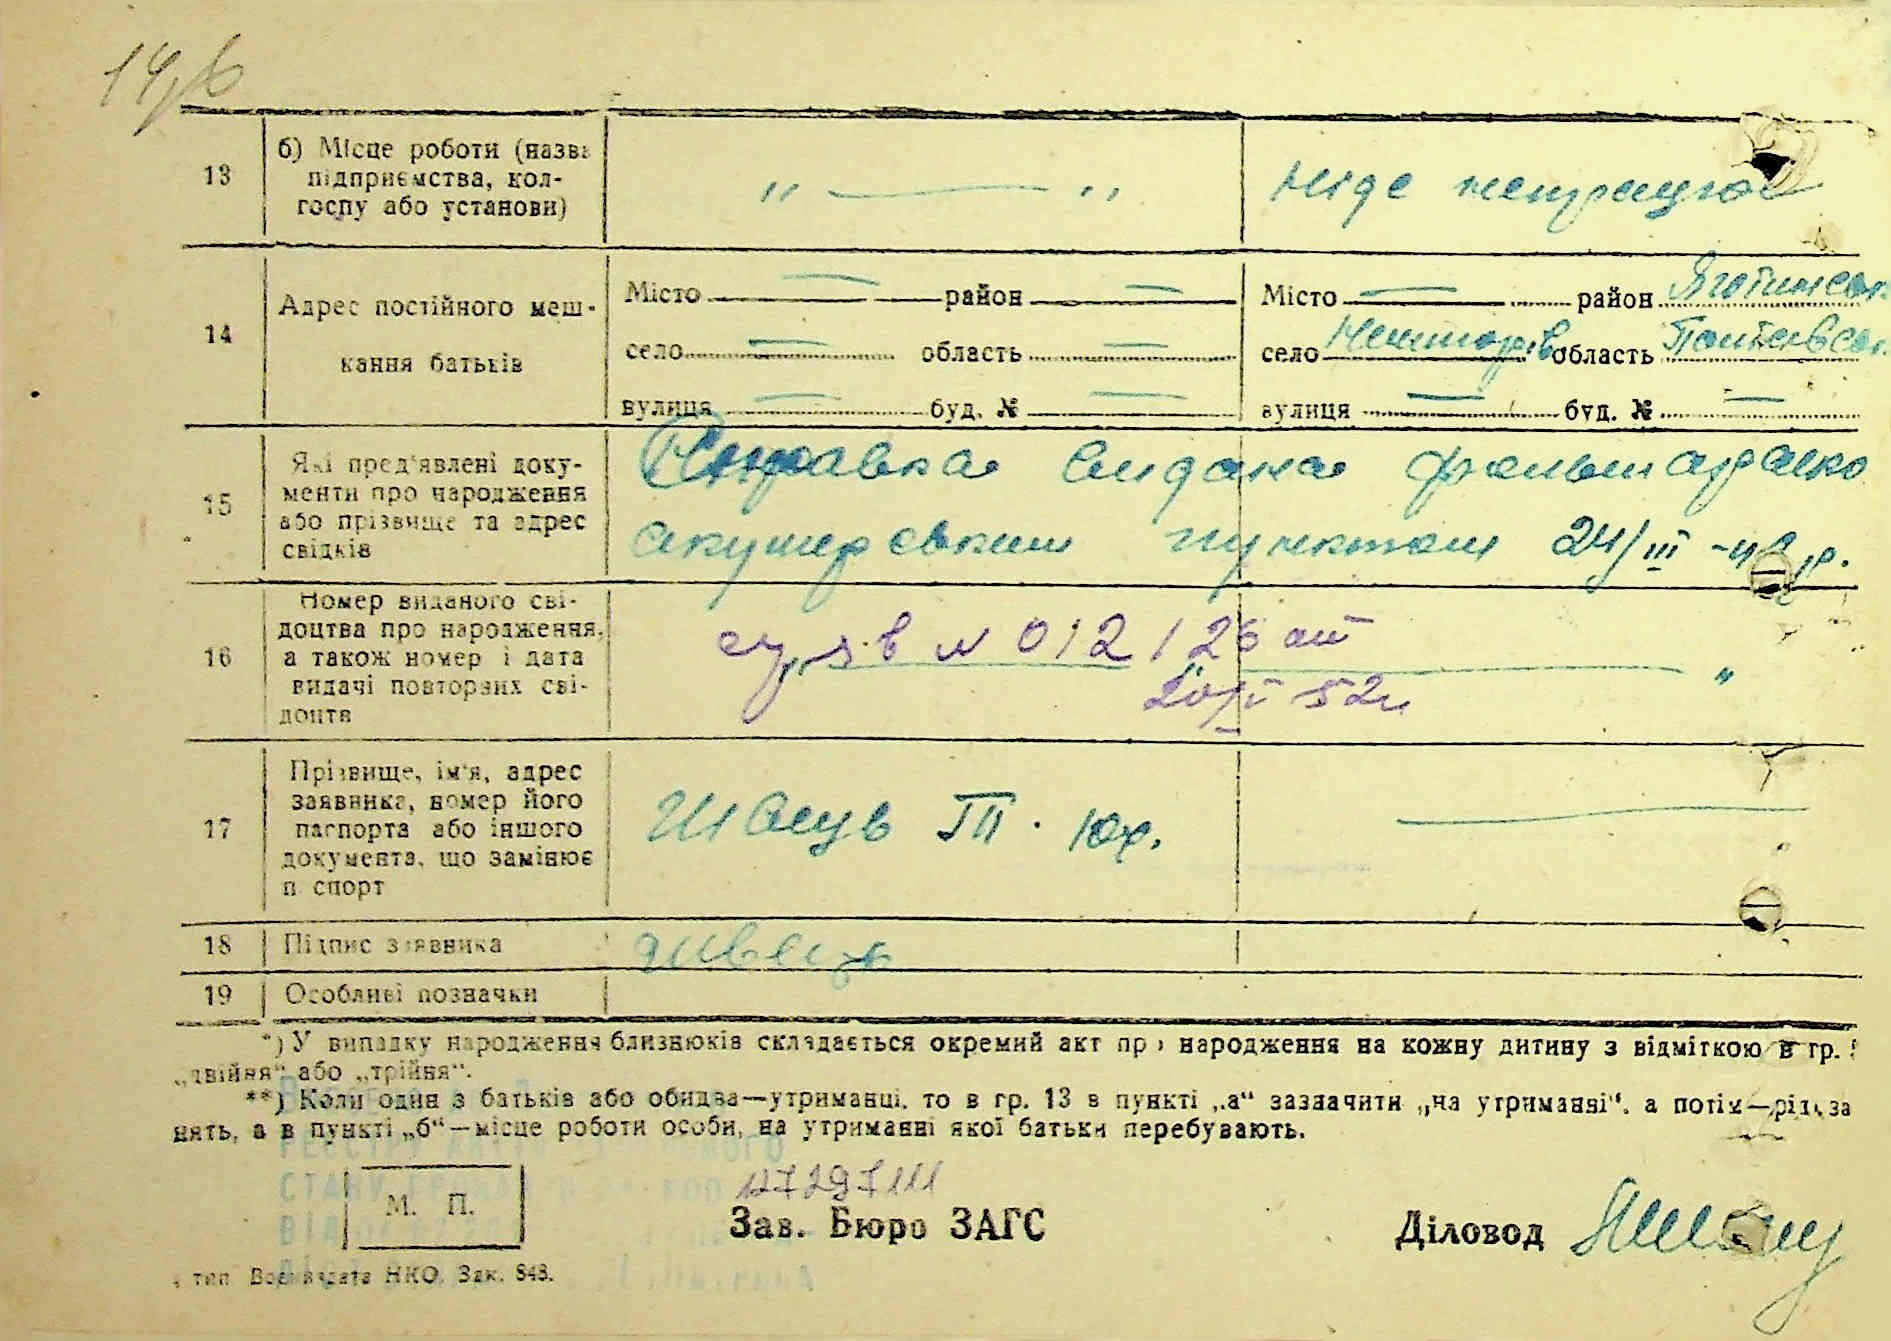 13
б) Місце роботи (назва
підприємства, кол-
госпу або установи)
" — "
ніде непрацює
14
Адрес постійного меш-
кання батьків
Місто — район —
село — область —
вулиця — буд. № —
Місто — район Яготинськ.
село область Полтавськ.
вулиця — буд. № —
15
Які пред'явлені доку-
менти про народження
або прізвище та адрес
свідків
Справка видана фельшарско
акушерським пунктом 24/III
16
Номер виданого сві-
доцтва про народження,
а також номер і дата
видачі повторних сві-
доцтв
№ 012126
52
17
Прізвище, ім'я, адрес
заявника, номер його
паспорта або іншого
документа, що замінює
п спорт
Швець П. Юх.
18
Підпис заявника
Швець
19
Особливі позначки
*) У випадку народження близнюків складається окремий акт про народження на кожну дитину з відміткою в гр. 5
„двійня“ або „трійня“.
**) Коли один з батьків або обидва—утриманці, то в гр. 13 в пункті „а“ зазначити „на утриманні“, а потім—рід за
нять, а в пункті „б“—місце роботи особи, на утриманні якої батьки перебувають.
М. П.
Зав. Бюро ЗАГС
Діловод
тип. Воениздата НКО. Зак. 843.